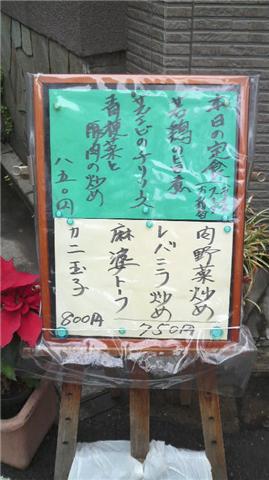 本日の定食
若鶏の旨煮
芝エビのチリソース
青梗菜と
豚肉の炒め
八五〇円
肉野菜炒め
レバニラ炒め
750円
麻婆トーフ
カニ玉子
800円